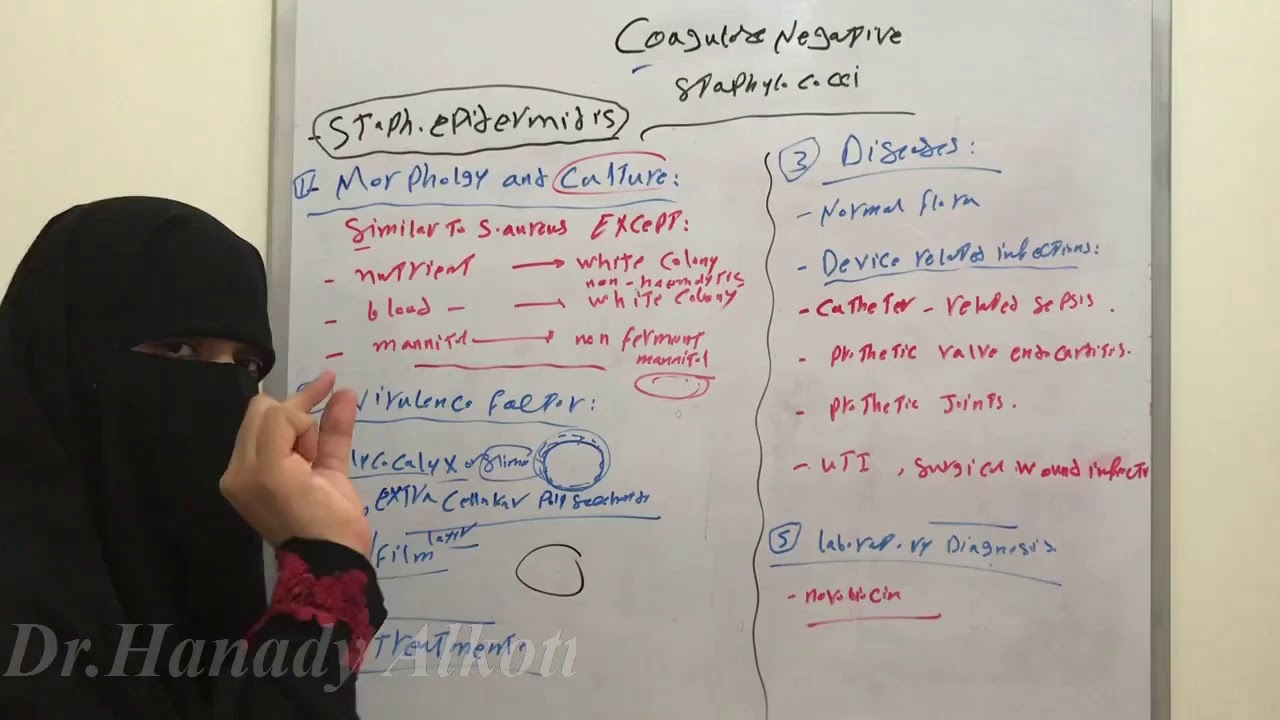 Coagulase Negative
Staphylococci
- Staph. epidermidis
1- Morphology and Culture:
Similar to S.aureus EXCePT:
- nutrient → white Colony
non-haemolytis
- blood - → white Colony
- mannitol → non ferment
mannitol
Virulence factor:
lycocalyx or slime
, extra Cellular Poly saccharide
film layer
Treatment:
3 Diseases:
- Normal flora
- Device related infections:
- Catheter - related sepsis.
- Prothetic valve endocarditis.
- Prothetic Joints.
- UTI, Surgical wound infecti
5 laboratory Diagnosis
- novobiocin
Dr.Hanady Alkoti